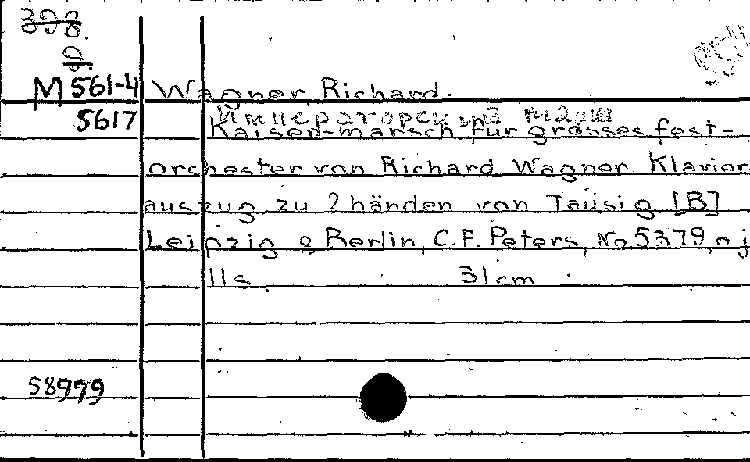 M 561-4 Wagner, Richard.
5617 Императорский марш
Kaiser-marsch für grosses fest-
orchester von Richard Wagner Klavier
auszug zu 2 händen von Tausig [B]
Leipzig & Berlin, C.F. Peters, No 5379, o j
11s. 31cm
58979